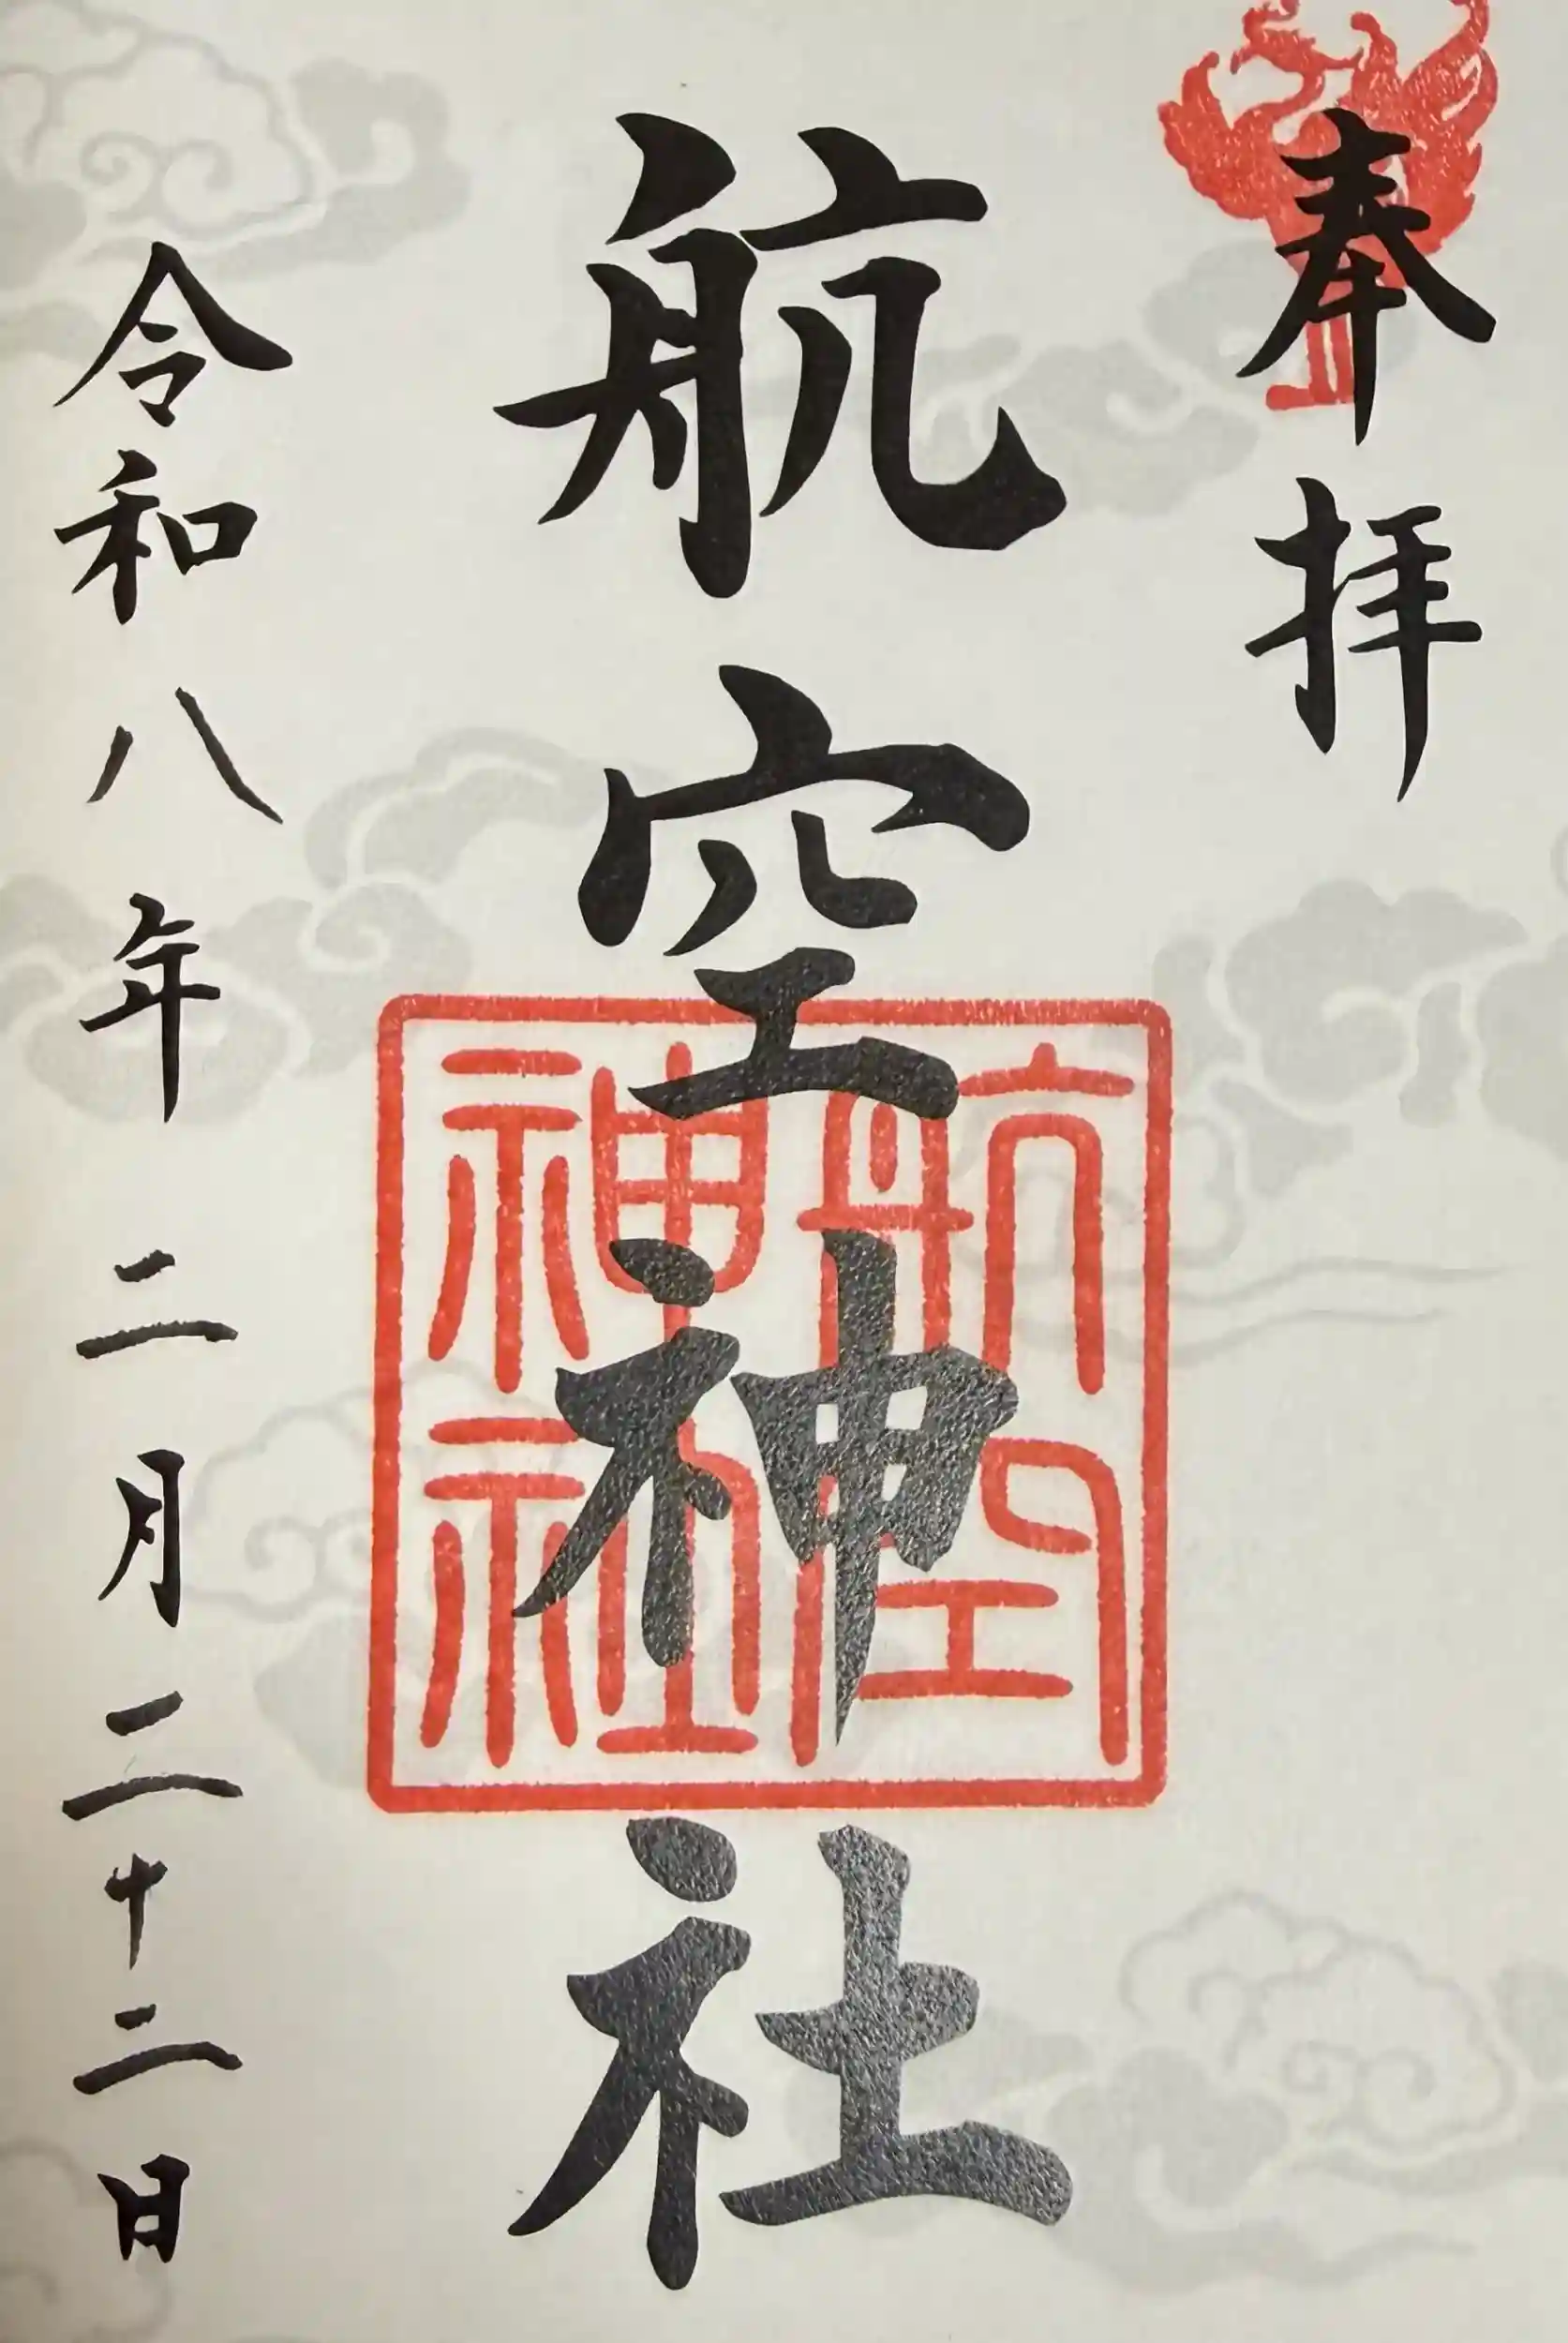 奉拝
航空神社
航空神社
令和八年二月二十二日